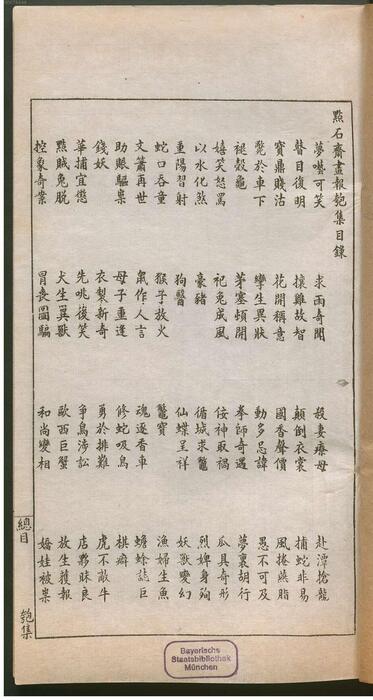 點石齋畫報匏集目錄
夢囈可笑 求雨奇聞 殺妻療母 赴潭搶龍
瞽目復明 攘雞故智 顛倒衣裳 捕蛇非易
寶鼎賤沽 花開稱意 國香聲價 風捲燕脂
斃於車下 孿生異狀 動多忌諱 愚不可及
褪殼龜 茅塞頓開 拳師奇遇 夢裏胡行
嬉笑怒罵 祀兔成風 佞神取禍 瓜具奇形
以水化煞 豪豬 循城求鼈 烈婢身殉
重陽習射 狗醫 仙蝶呈祥 妖獸變幻
蛇口吞童 猴子放火 鼈寶 漁婦生魚
文簫再世 氣作人言 魂逐香車 蟾蜍誌巨
助賑驅祟 母子重逢 修蛇吸鳥 棋癖
錢妖 衣製新奇 勇於排難 虎不敵牛
華捕宜懲 先咷後笑 爭鳥涉訟 店夥昧良
黠賊兔脫 犬生異獸 歐西巨蟹 放生獲報
控象奇案 冒喪圖騙 和尚變相 嬌娃被祟
總目 匏集
Bayerische
Staatsbibliothek
München